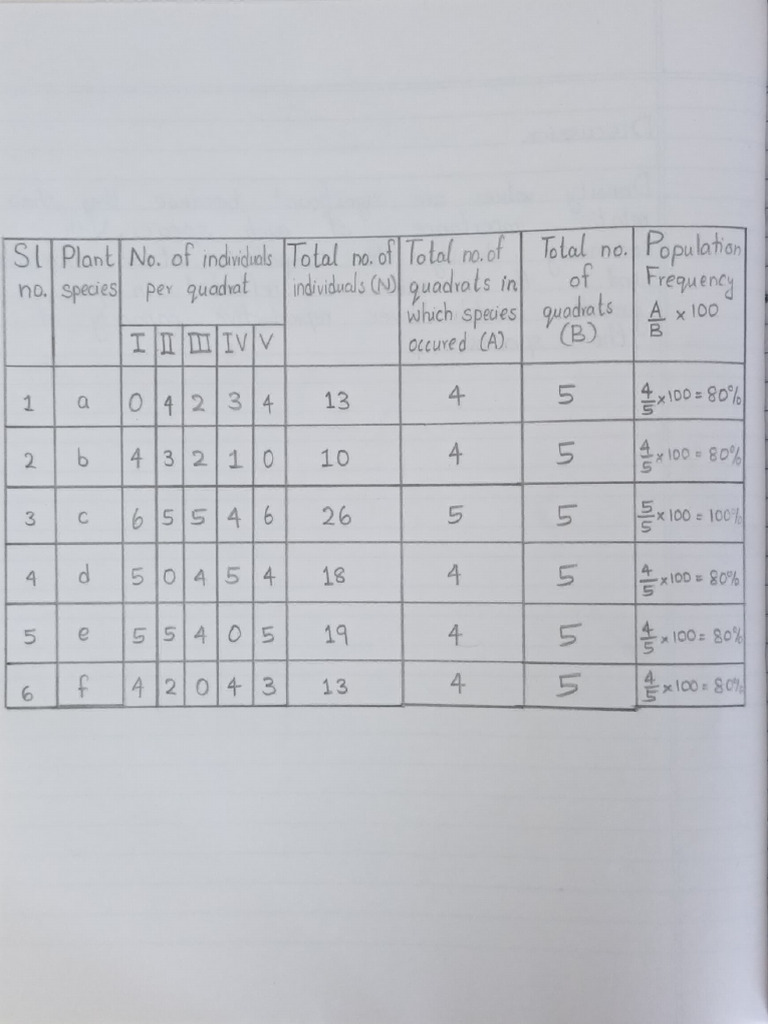 Sl no. | Plant species | No. of individuals per quadrat | Total no. of individuals (N) | Total no. of quadrats in which species occured (A) | Total no. of quadrats (B) | Population Frequency A/B × 100
I | II | III | IV | V
1 | a | 0 | 4 | 2 | 3 | 4 | 13 | 4 | 5 | 4/5 × 100 = 80%
2 | b | 4 | 3 | 2 | 1 | 0 | 10 | 4 | 5 | 4/5 × 100 = 80%
3 | c | 6 | 5 | 5 | 4 | 6 | 26 | 5 | 5 | 5/5 × 100 = 100%
4 | d | 5 | 0 | 4 | 5 | 4 | 18 | 4 | 5 | 4/5 × 100 = 80%
5 | e | 5 | 5 | 4 | 0 | 5 | 19 | 4 | 5 | 4/5 × 100 = 80%
6 | f | 4 | 2 | 0 | 4 | 3 | 13 | 4 | 5 | 4/5 × 100 = 80%